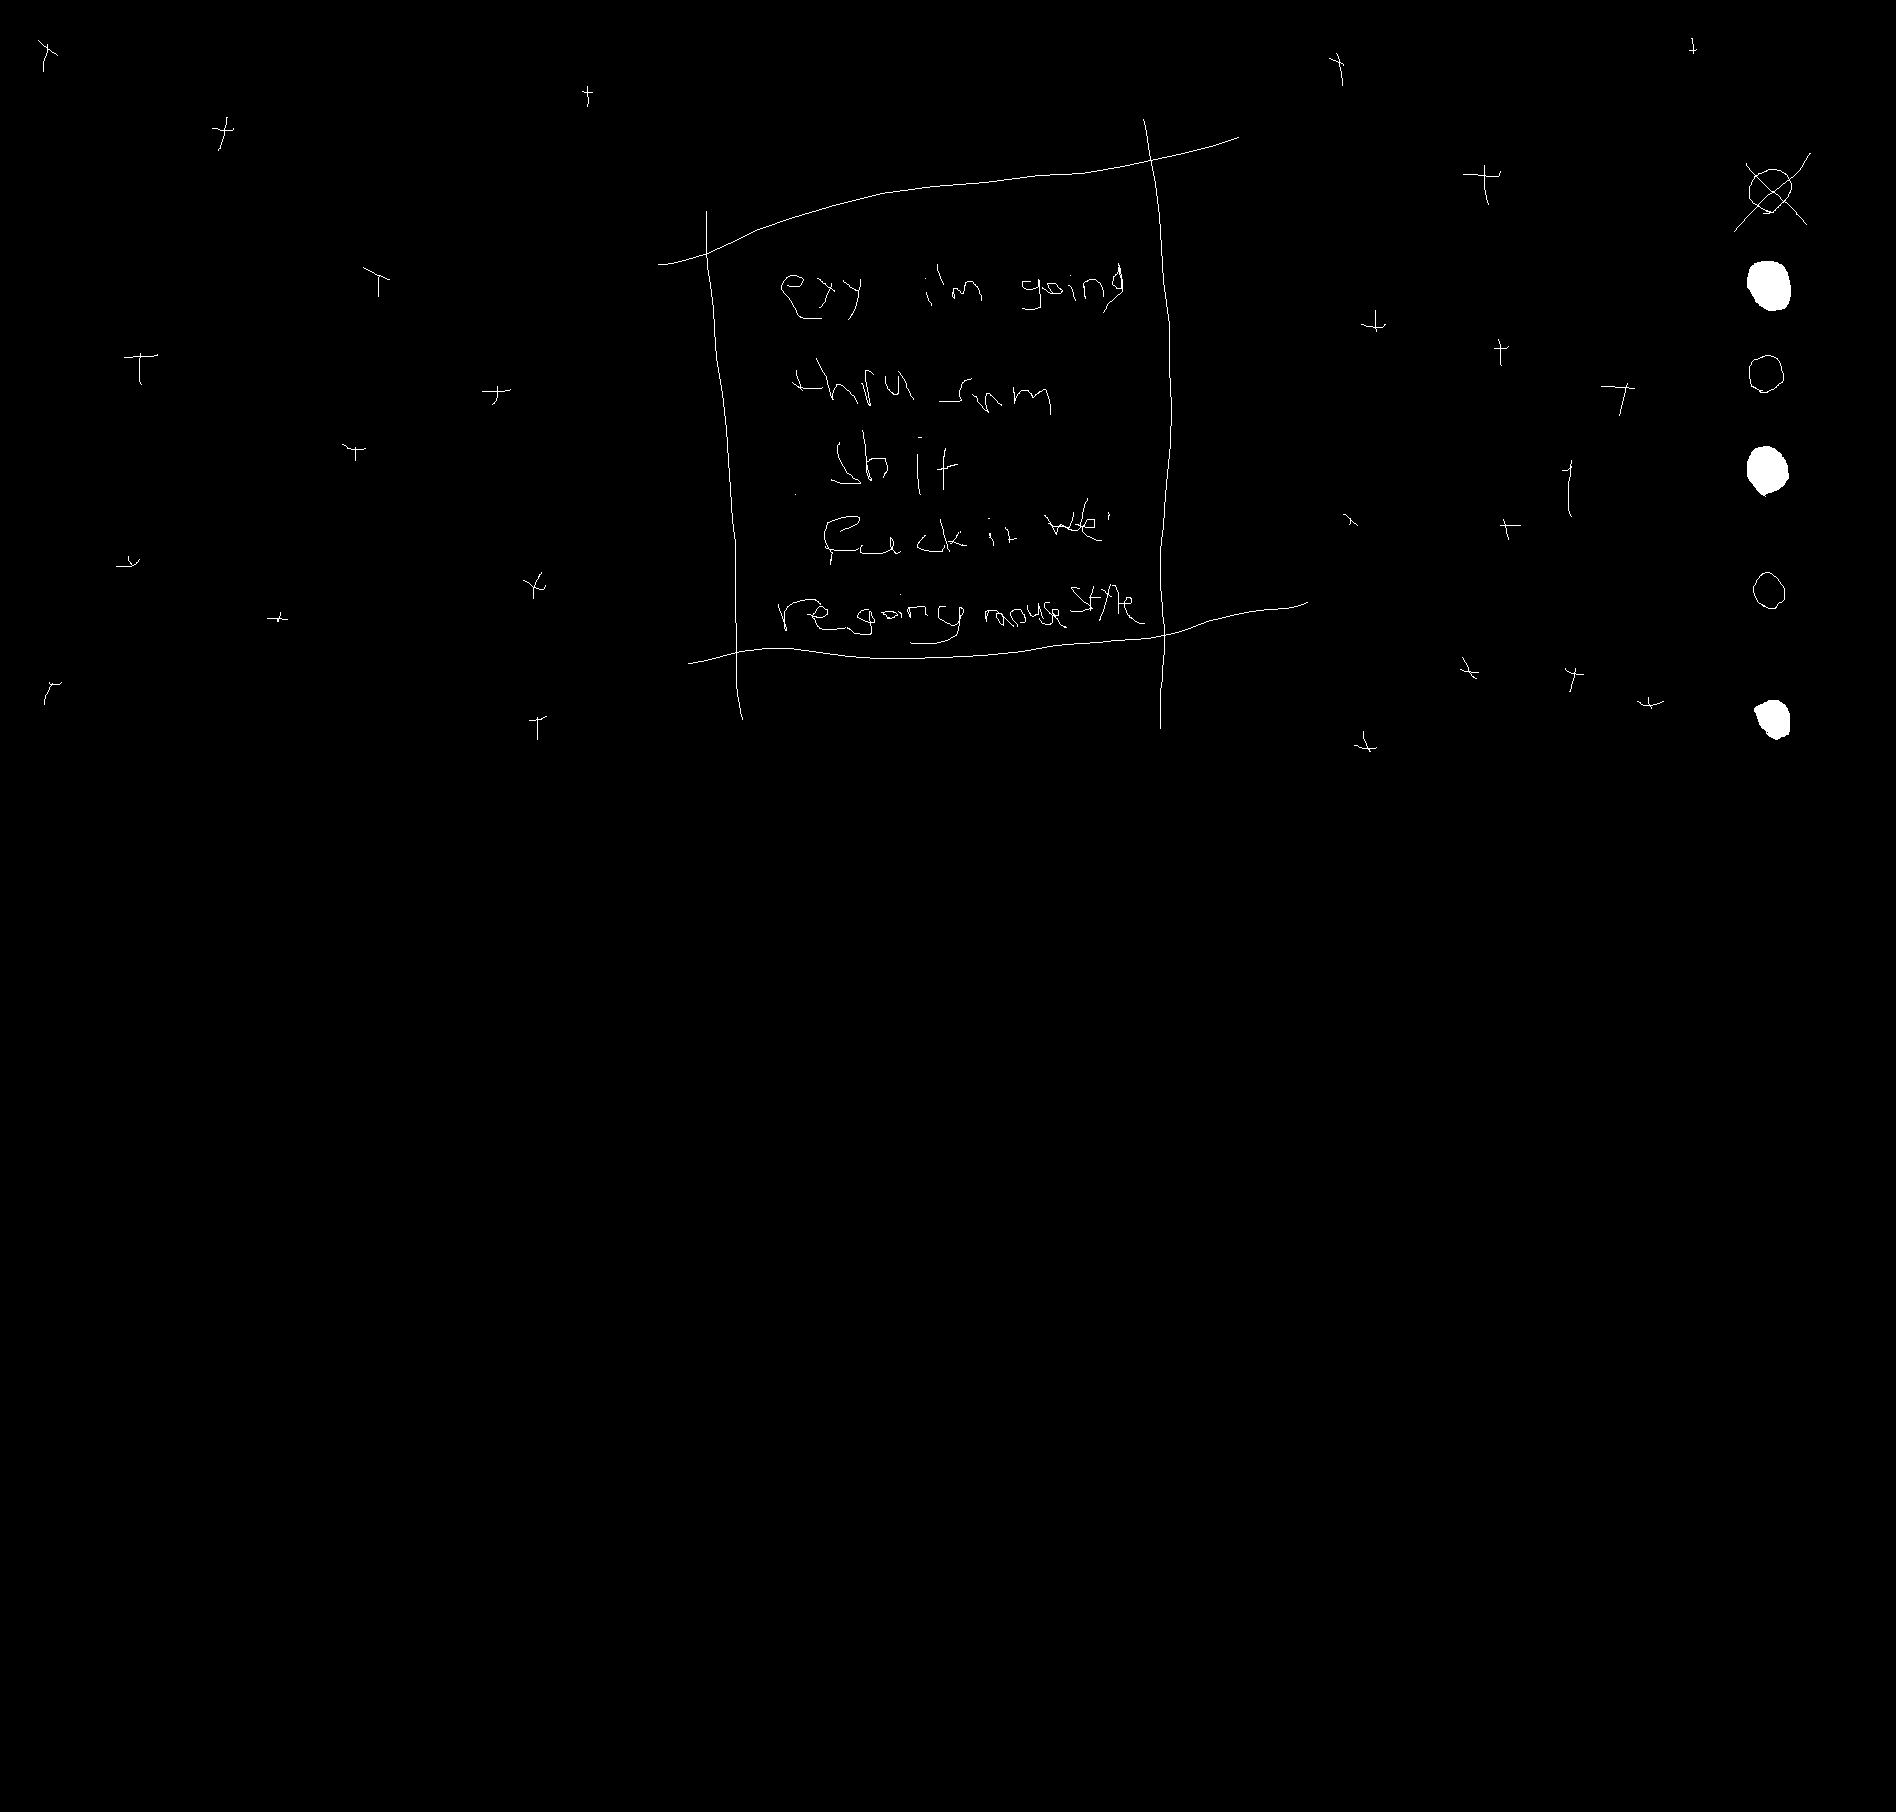 eyy i'm going
thru sum
shit
fuck it we'
re going mouse style